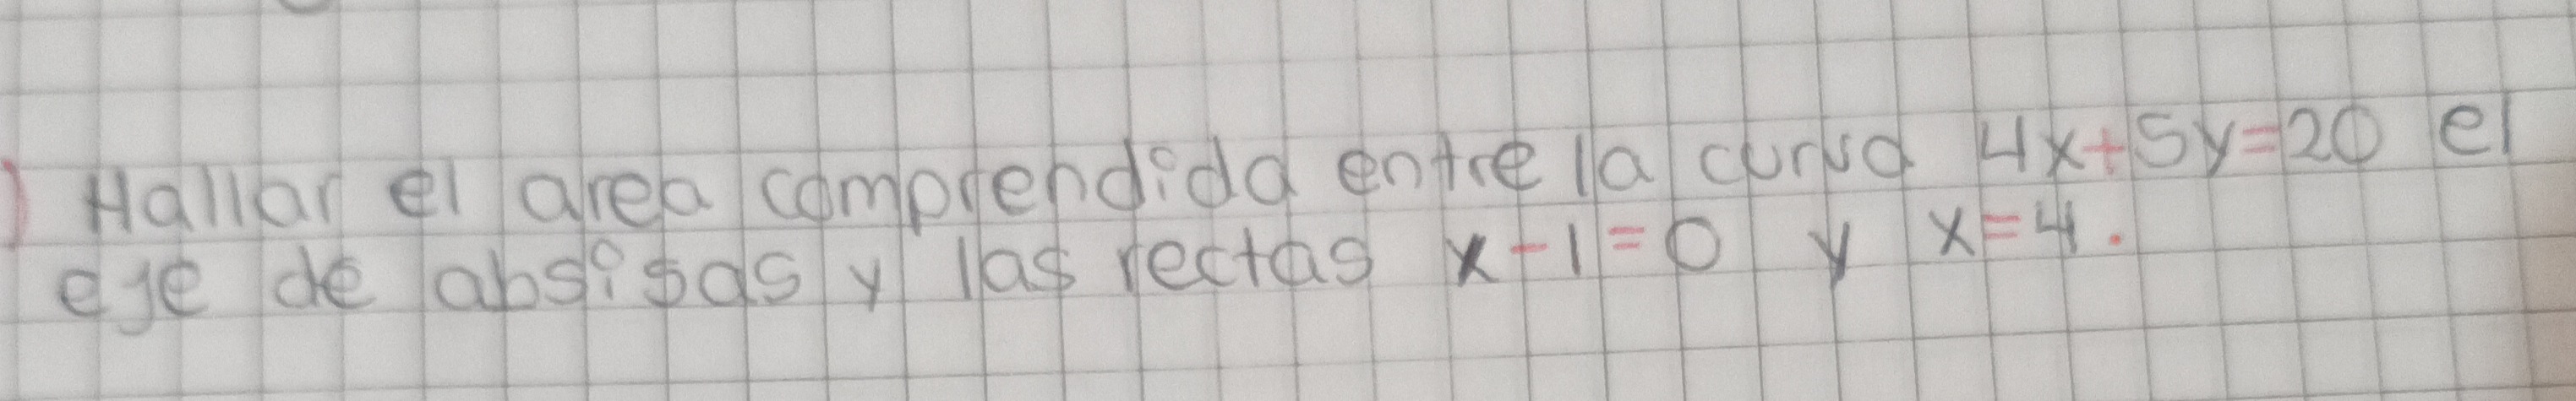 ) Hallar el area comprendida entre la curva 4x+5y=20 el
eje de absisas y las rectas x-1=0 y x=4.